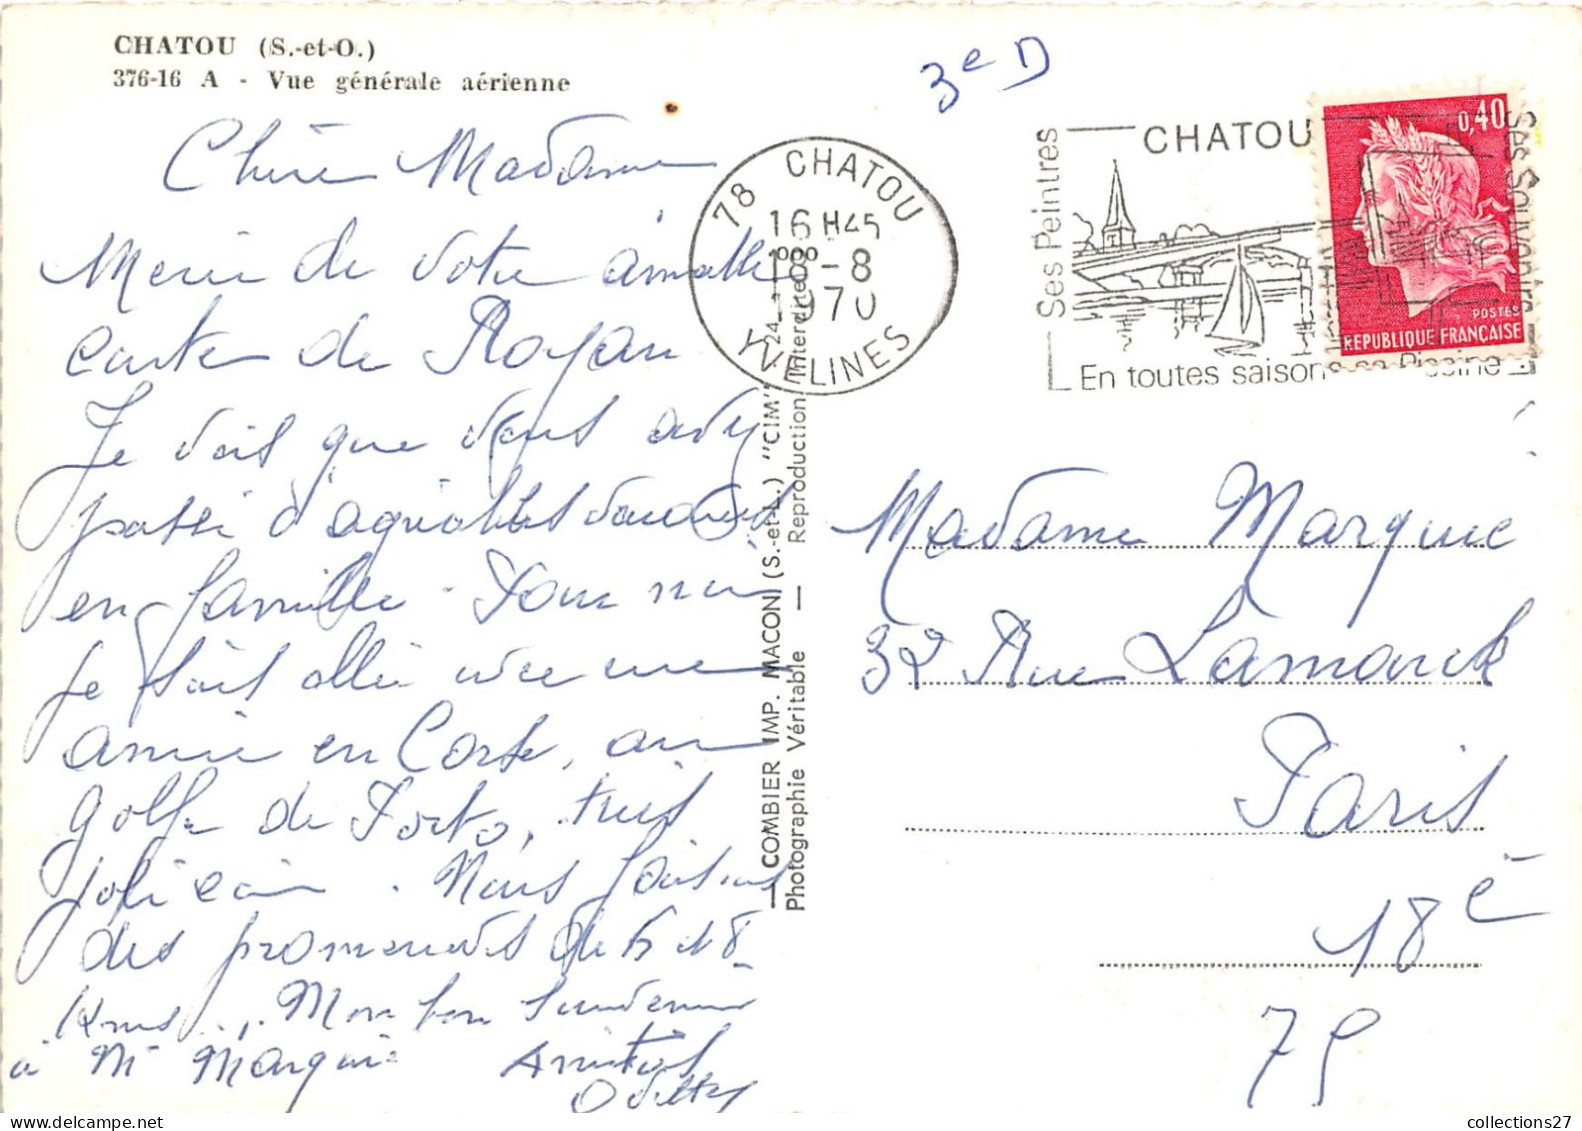 CHATOU (S.-et-O.)
376-16 A - Vue générale aérienne
3e D
Chère Madame
Merci de votre aimable
carte de Royan
Je vois que vous avez
passé d'agréables vacances
en famille - Pour moi
je suis allée avec une
amie en Corse, au
golfe de Porto, très
joli coin. Nous faisions
des promenades de 6 à 8
Kms... Mon bon Souvenir
à Mr Marquié Amitiés
Odette
78 CHATOU
16 H45
-8
1970
YVELINES
CHATOU
Ses Peintres
En toutes saisons sa Piscine
0,40
POSTES
REPUBLIQUE FRANÇAISE
COMBIER IMP. MACON (S.-et-L.) "CIM"
Photographie Véritable — Reproduction Interdite
Madame Marquié
32 Rue Lamarck
Paris
18è
75
collections27